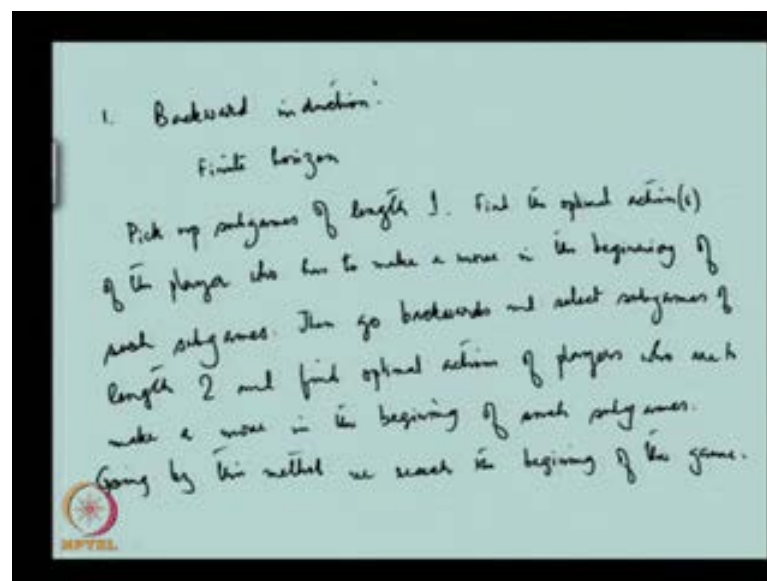 1. Backward induction:
Finite horizon
Pick up subgames of length 1. Find the optimal action(s)
of the player who has to make a move in the beginning of
such subgames. Then go backwards and select subgames of
length 2 and find optimal actions of players who are to
make a move in the begining of such subgames.
Going by this method we reach the begining of the game.
NPTEL